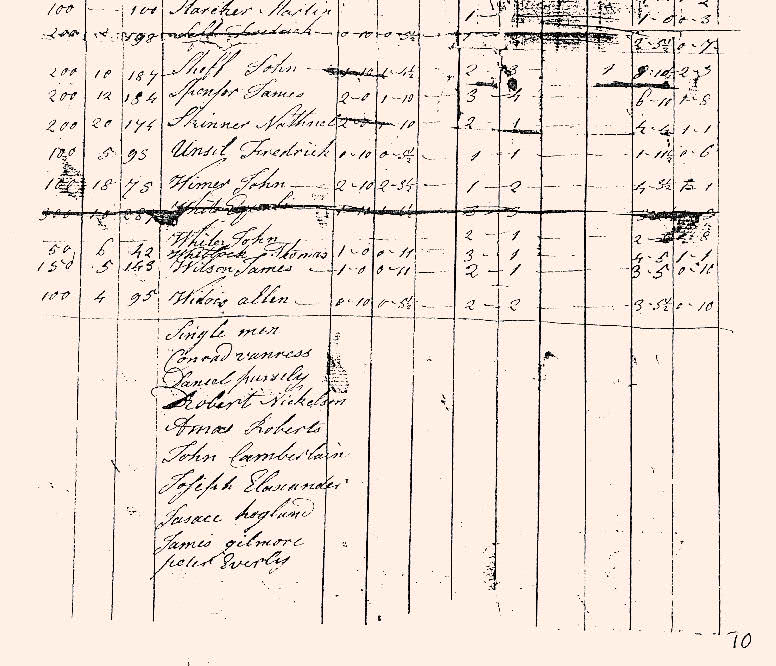 100 — 100 Starcher Martin 1
200 2 198 Frederick 0-10 0-5½ 2-5½ 0-7
200 10 187 Sheff John 1-4½ 2 3 1 2-3
200 12 184 Spenser James 2-0 1-10 3 4 6-11 1-8
200 20 174 Skinner Nathnel 10 2 1 1-1
100 5 95 Unsil Fredrick 1-10 0-5½ 1 1 1-11½ 0-6
100 18 75 Wimer John 2-10 2-3½ 1 2 4-5½ 1
White
White John 2 1 2 8
50 6 42 Whitlock Thomas 1-0 0-11 3 1 4-5 1-1
150 5 145 Wilson James 1-0 0-11 2 1 3-5 0-10
100 4 95 Widow allen 0-10 0-5½ 2 2 3-5½ 0-10
Single men
Conrad vanress
Daniel pursely
Robert Nickelson
Amos Roberts
John Camberlain
Joseph Elaxander
Jasace hogland
James gilmore
peter Everly
10